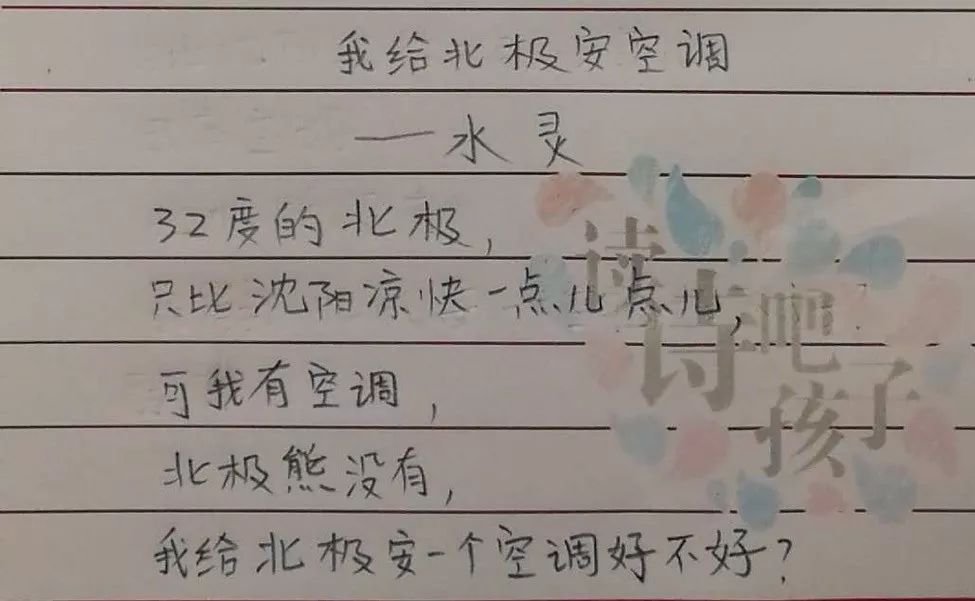 我给北极安空调
——水灵
32度的北极,
只比沈阳凉快一点儿点儿,
可我有空调,
北极熊没有,
我给北极安一个空调好不好?
读诗吧孩子